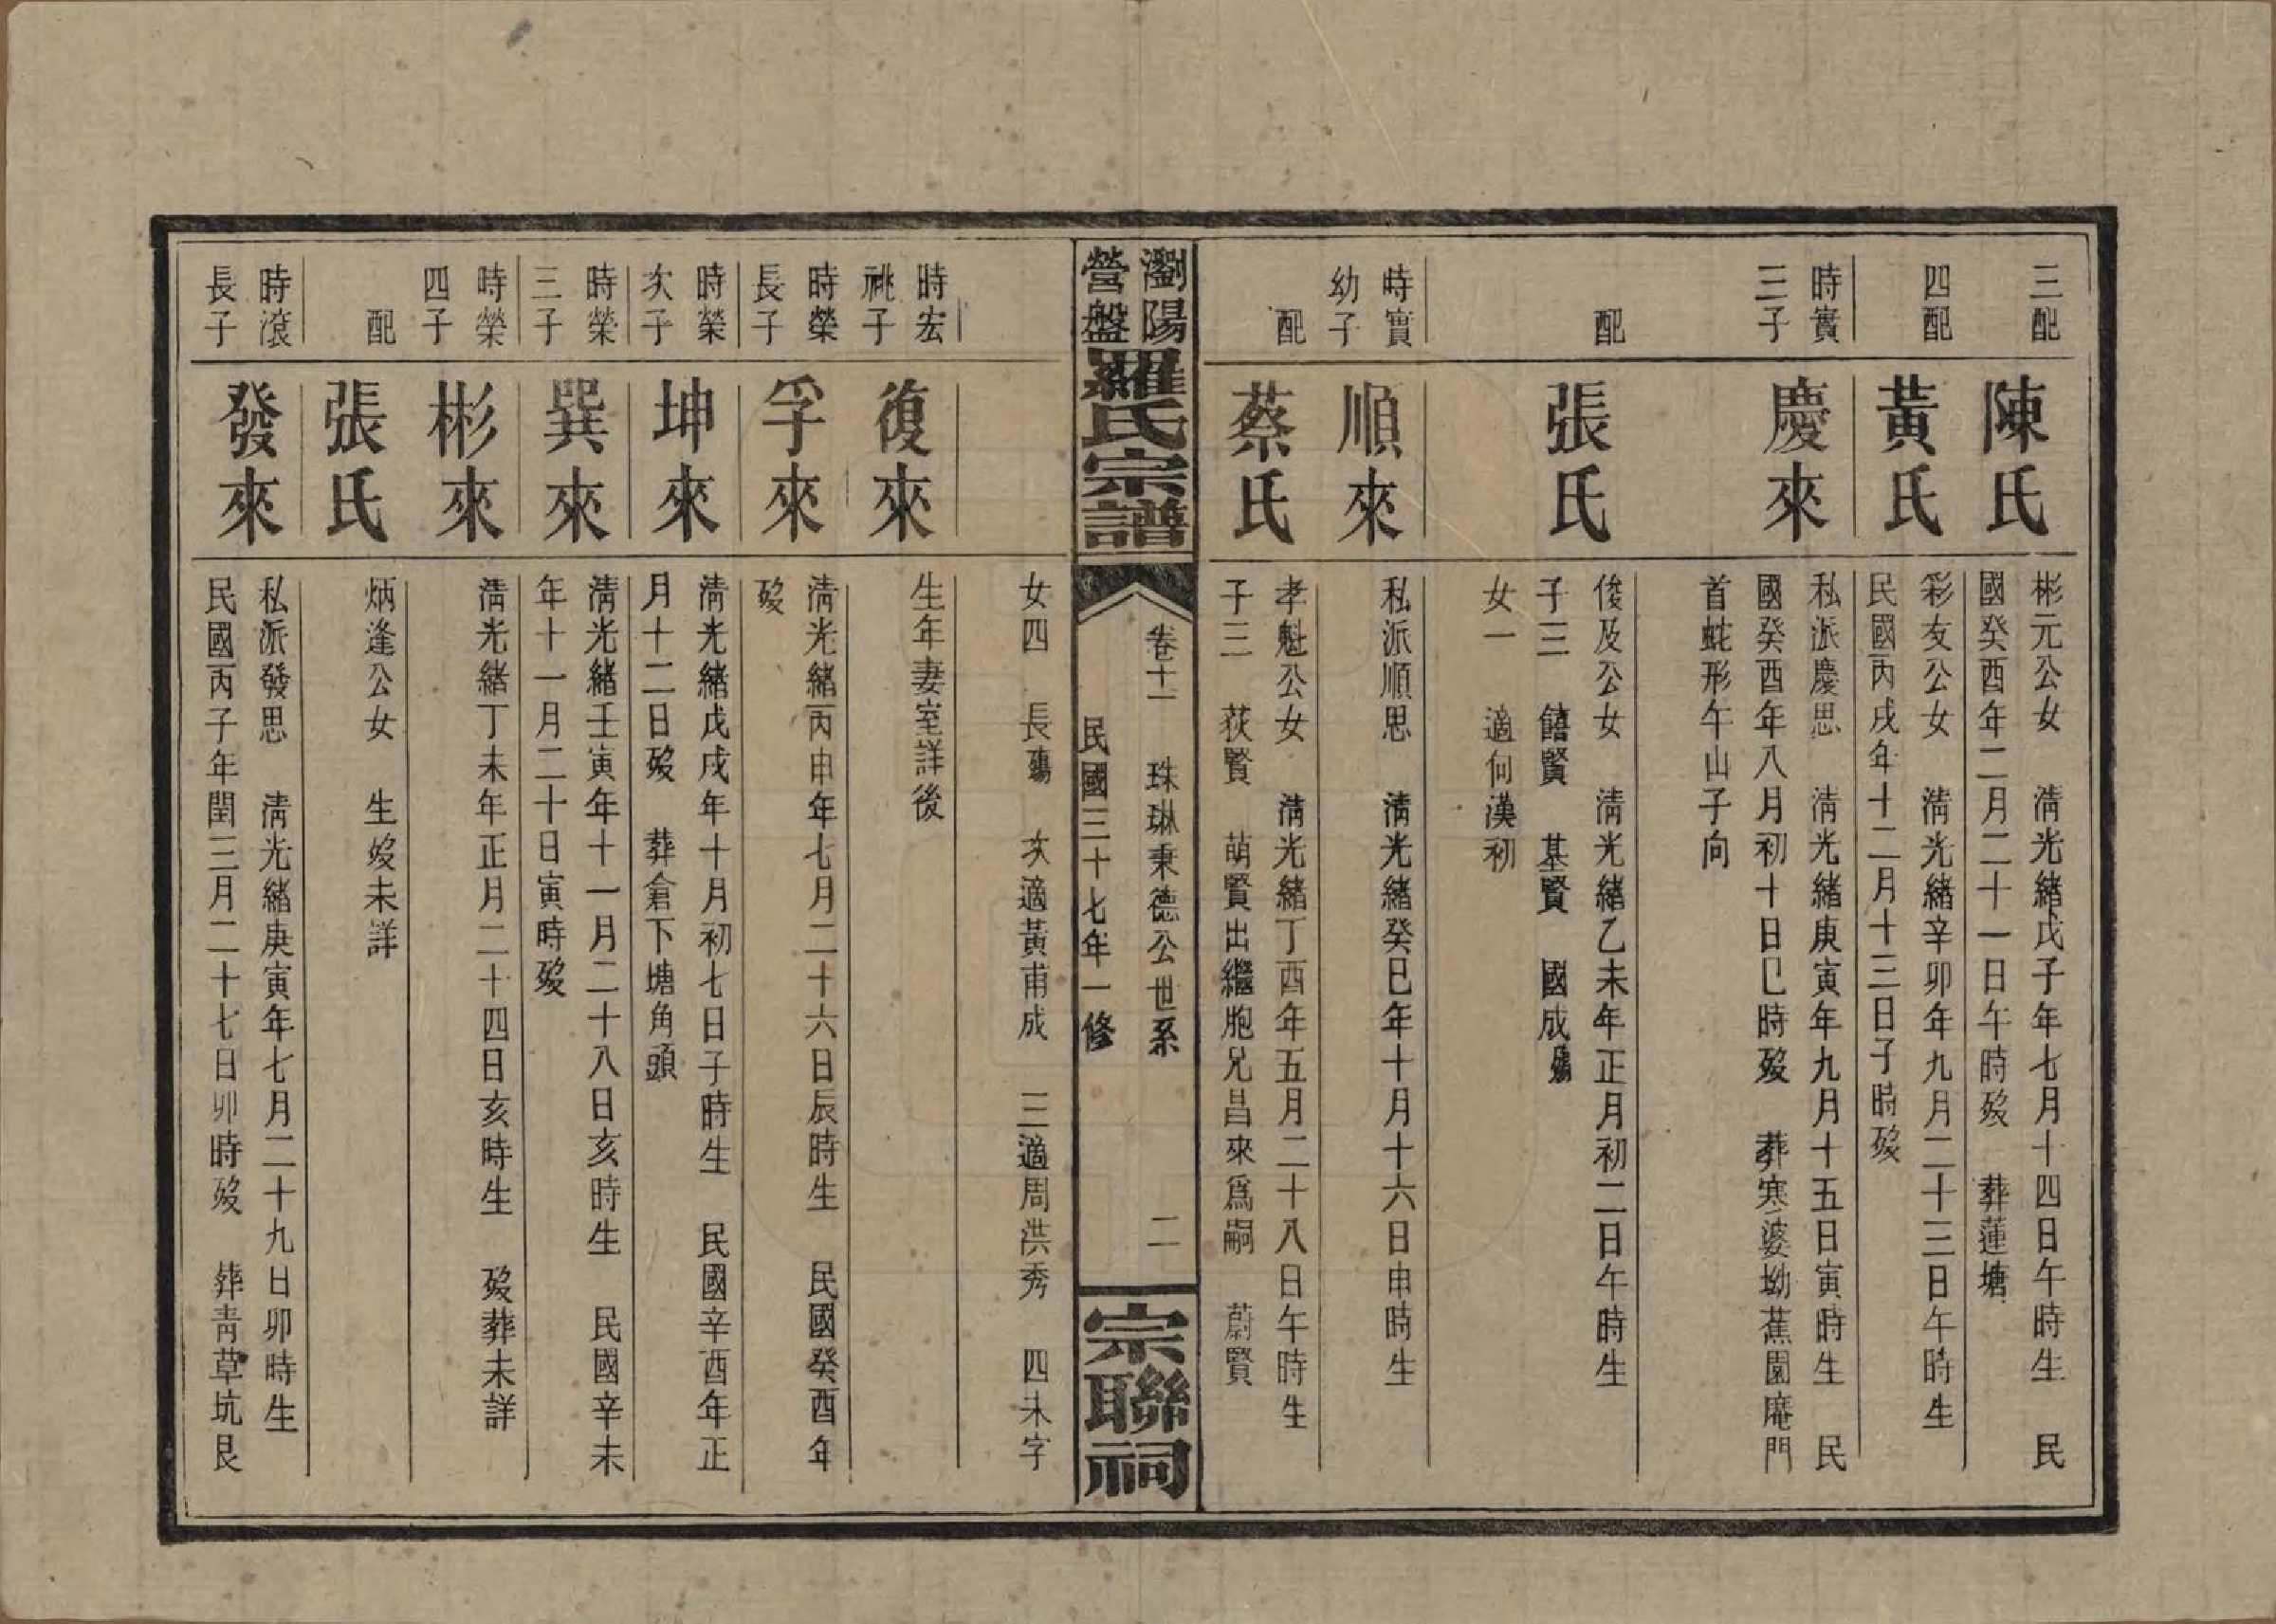 三配
陳氏
彬元公女　清光緒戊子年七月十四日午時生　民
國癸酉年二月二十一日午時歿　葬蓮塘
四配
黃氏
彩友公女　清光緒辛卯年九月二十三日午時生
民國丙戌年十二月十三日子時歿
時實
三子
慶來
私派慶思　清光緒庚寅年九月十五日寅時生　民
國癸酉年八月初十日巳時歿　葬寒婆坳蕉園庵門
首蛇形午山子向
配
張氏
俊及公女　清光緒乙未年正月初二日午時生
子三　饎賢　基賢　國成殤
女一　適何漢初
時實
幼子
順來
私派順思　清光緒癸巳年十月十六日申時生
配
蔡氏
孝魁公女　清光緒丁酉年五月二十八日午時生
子三　荻賢　萌賢出繼胞兄昌來爲嗣　蔚賢
瀏陽
營盤
羅氏宗譜
卷十一　珠琳秉德公世系　二
民國三十七年一修
宗聯祠
女四　長殤　次適黃甫成　三適周洪秀　四未字
時宏
祧子
復來
生年妻室詳後
時榮
長子
孚來
清光緒丙申年七月二十六日辰時生　民國癸酉年
歿
時榮
次子
坤來
清光緒戊戌年十月初七日子時生　民國辛酉年正
月十二日歿　葬倉下塘角頭
時榮
三子
巽來
清光緒壬寅年十一月二十八日亥時生　民國辛未
年十一月二十日寅時歿
時榮
四子
彬來
清光緒丁未年正月二十四日亥時生　歿葬未詳
配
張氏
炳逢公女　生歿未詳
時滾
長子
發來
私派發思　清光緒庚寅年七月二十九日卯時生
民國丙子年閏三月二十七日卯時歿　葬靑草坑艮